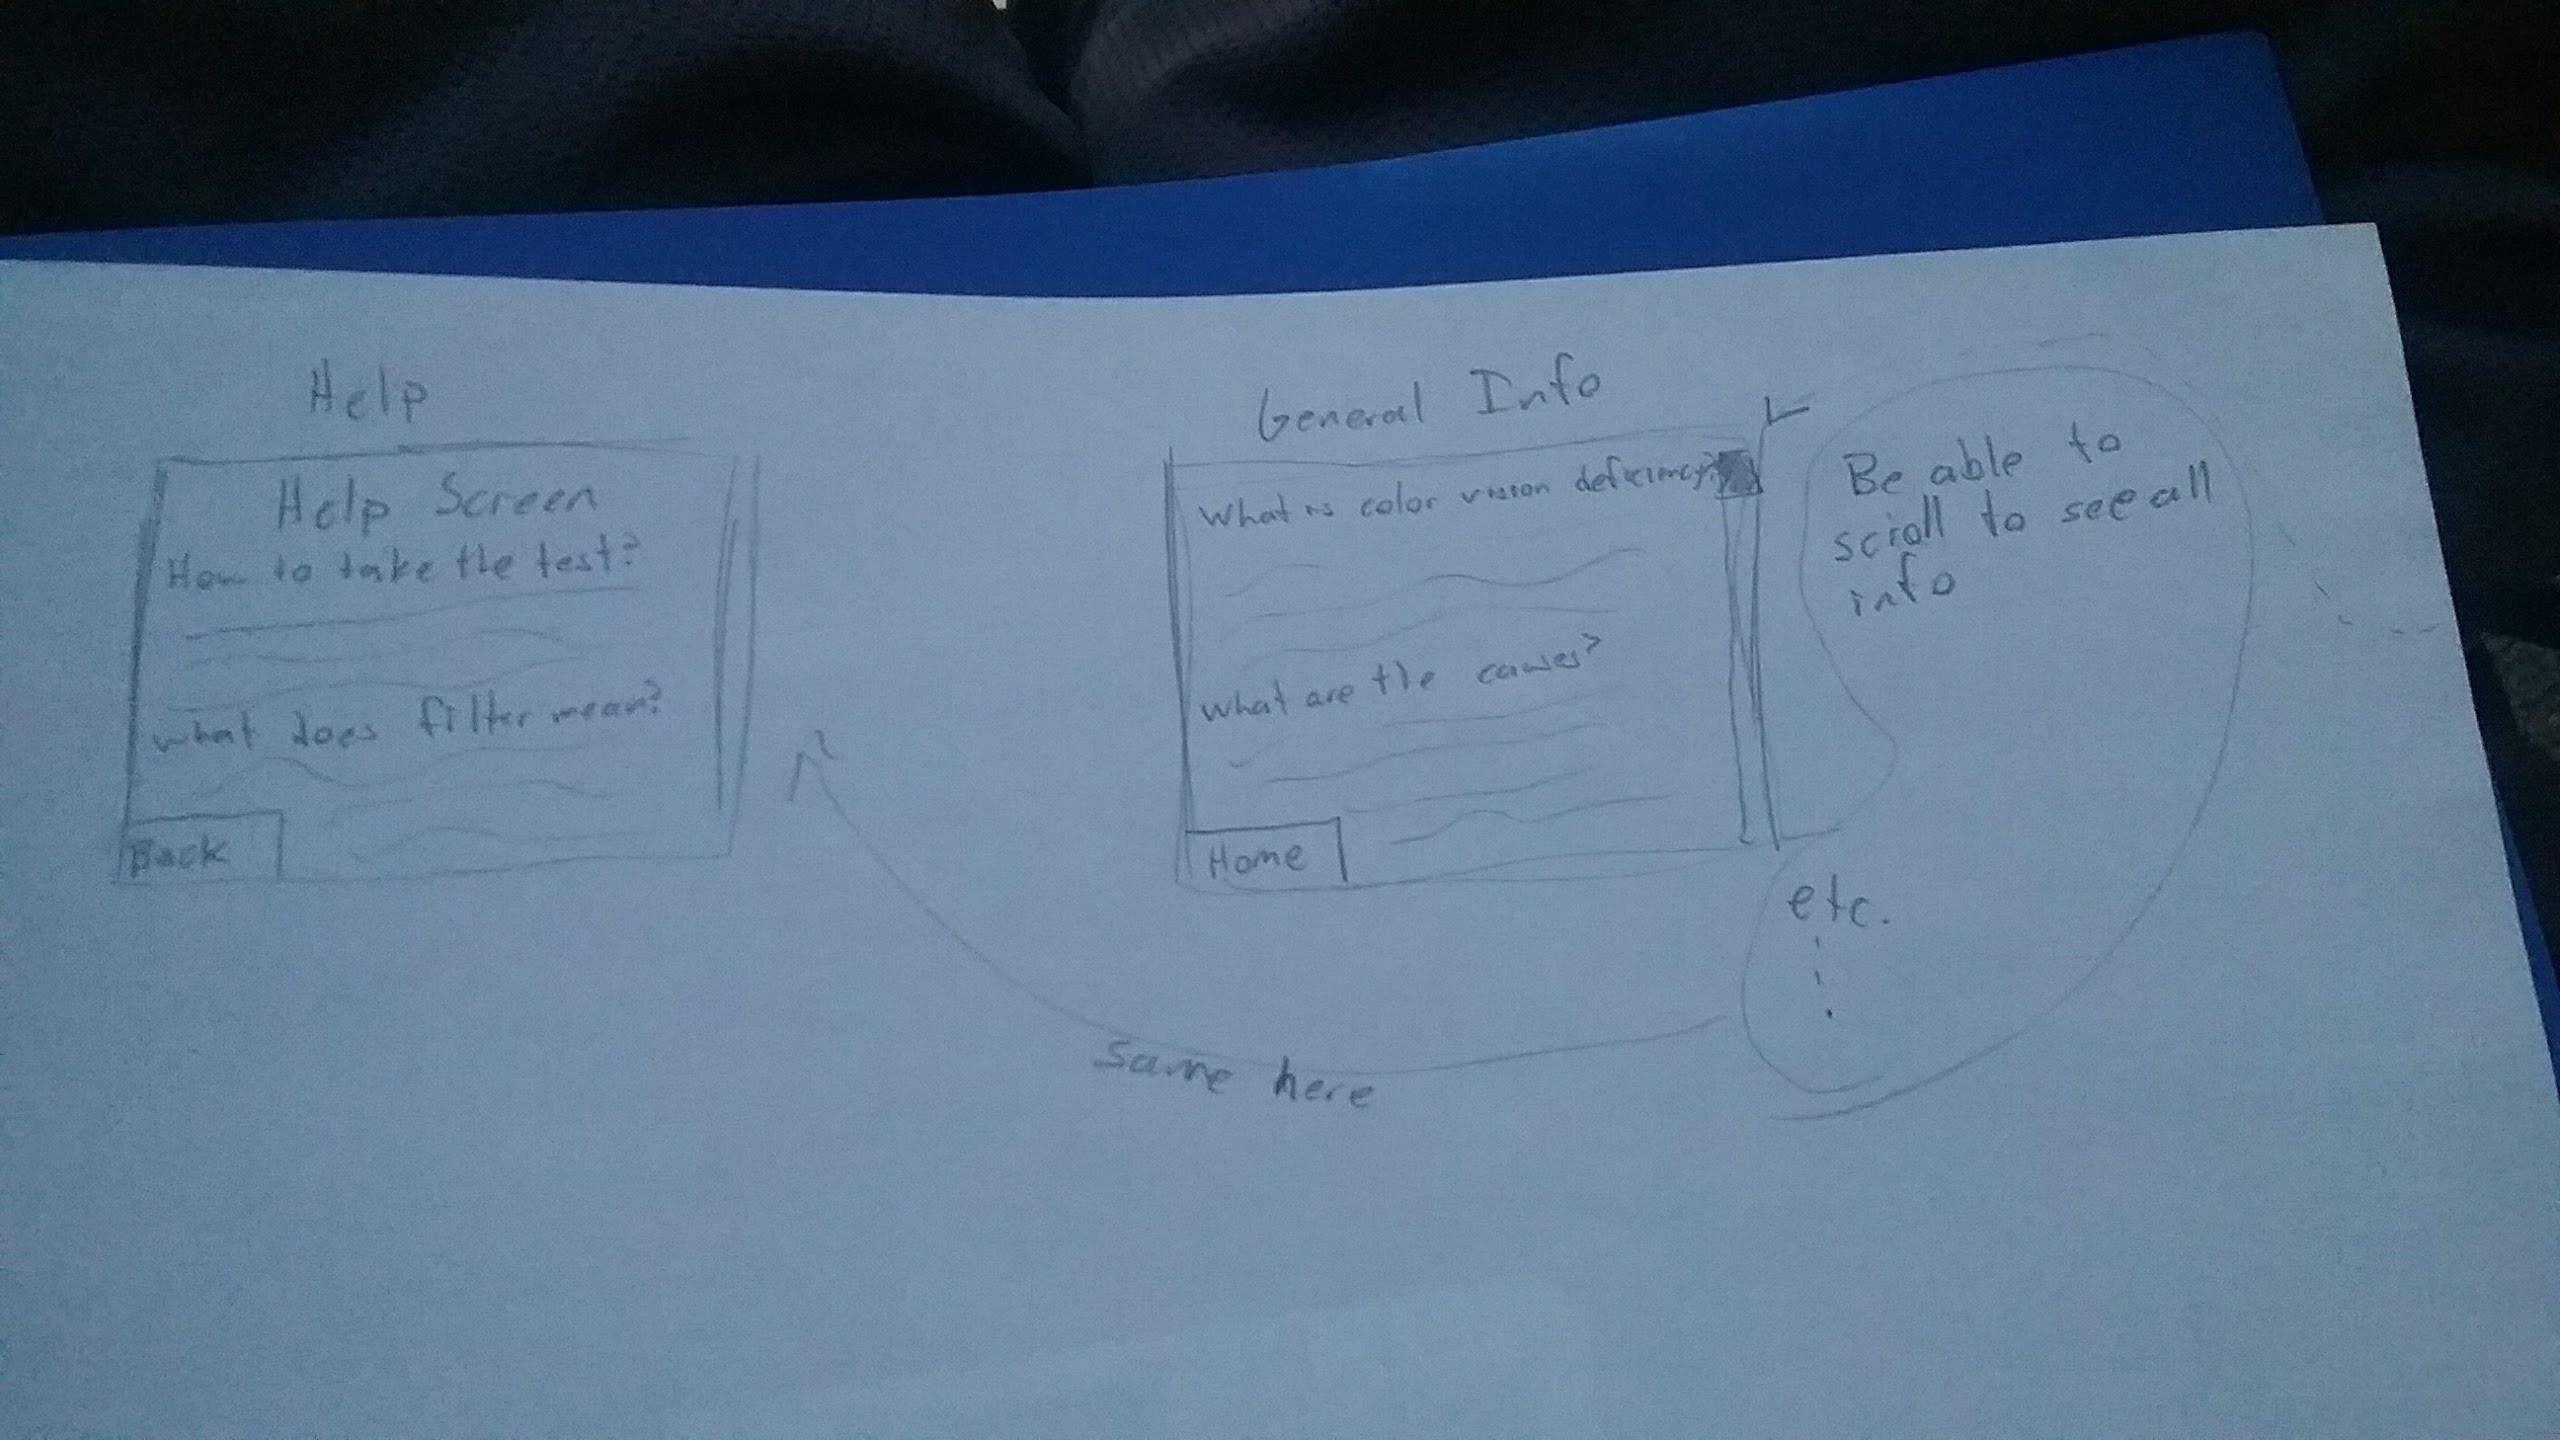 Help
Help Screen
How to take the test?
what does filter mean?
Back
General Info
What is color vision deficiency?
what are the causes?
Home
Be able to
scroll to see all
info
etc.
Same here